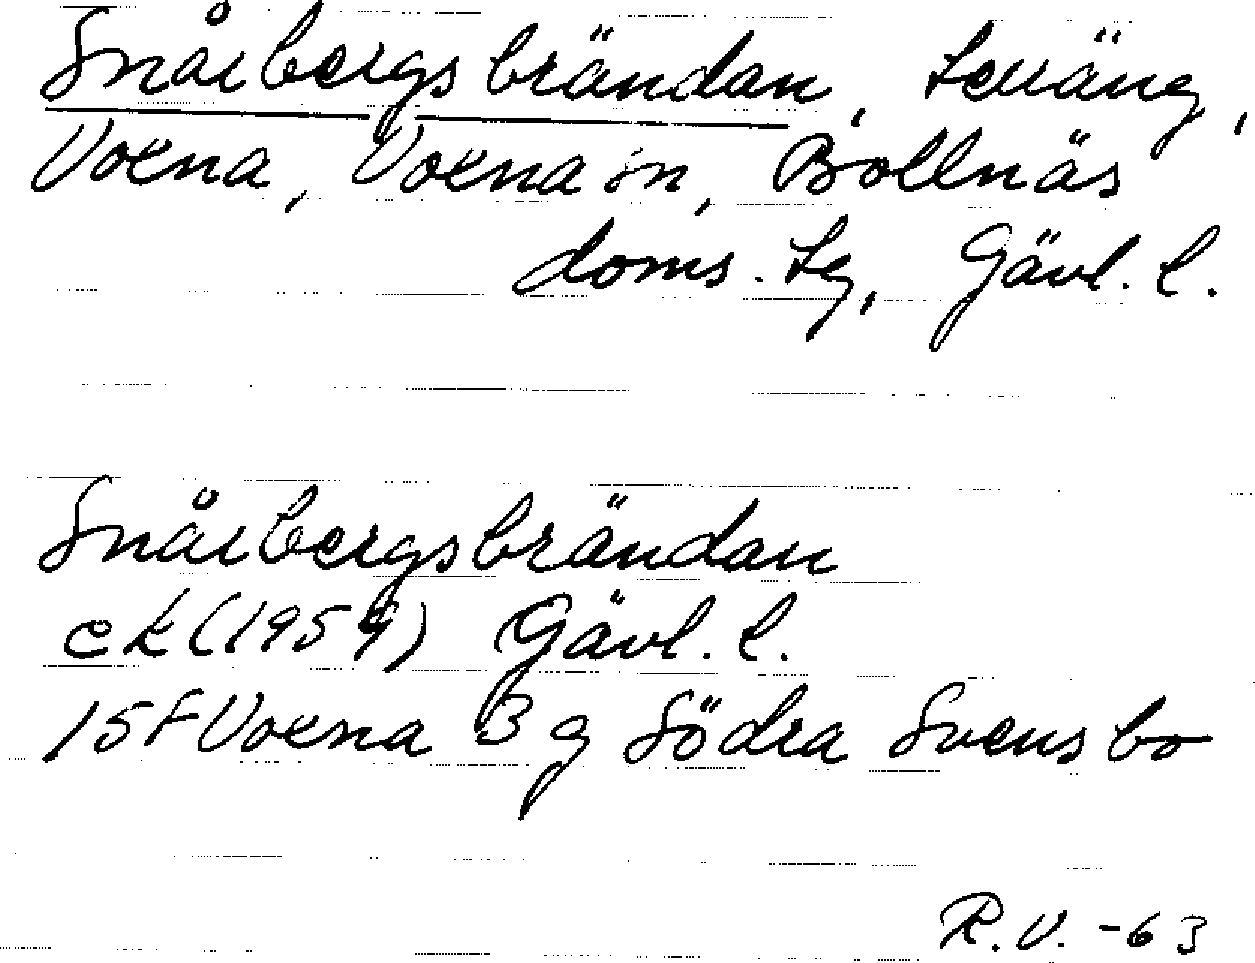 Snårbergsbrändan, terräng,
Voxna, Voxna sn, Bollnäs
doms. tg, Gävl. l.
Snårbergsbrändan
ek (1959) Gävl. l.
15F Voxna 3 g Södra Svensbo
R.V. -63